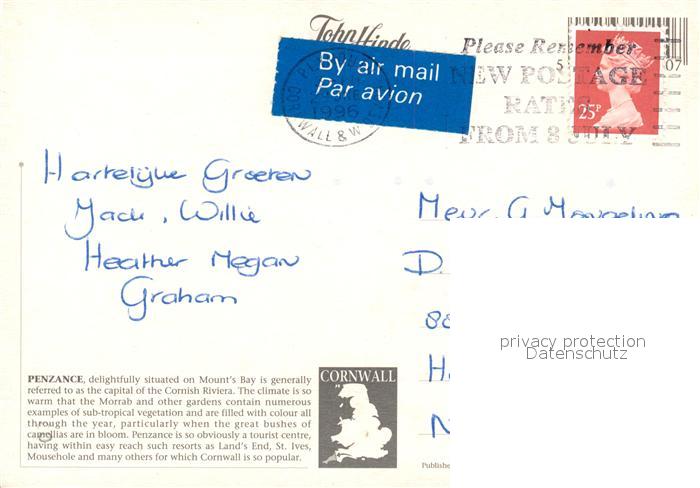 John Hinde
By air mail
Par avion
1996
WALL & W
Please Remember
NEW POSTAGE
RATES
FROM 8 JULY
5
07
25P
Hartelijke Groeten
Jack, Willie
Heather Megan
Graham
Mevr. G
D.
88
H
N
privacy protection
Datenschutz
PENZANCE, delightfully situated on Mount's Bay is generally
referred to as the capital of the Cornish Riviera. The climate is so
warm that the Morrab and other gardens contain numerous
examples of sub-tropical vegetation and are filled with colour all
through the year, particularly when the great bushes of
camellias are in bloom. Penzance is so obviously a tourist centre,
having within easy reach such resorts as Land's End, St. Ives,
Mousehole and many others for which Cornwall is so popular.
CORNWALL
Publishe